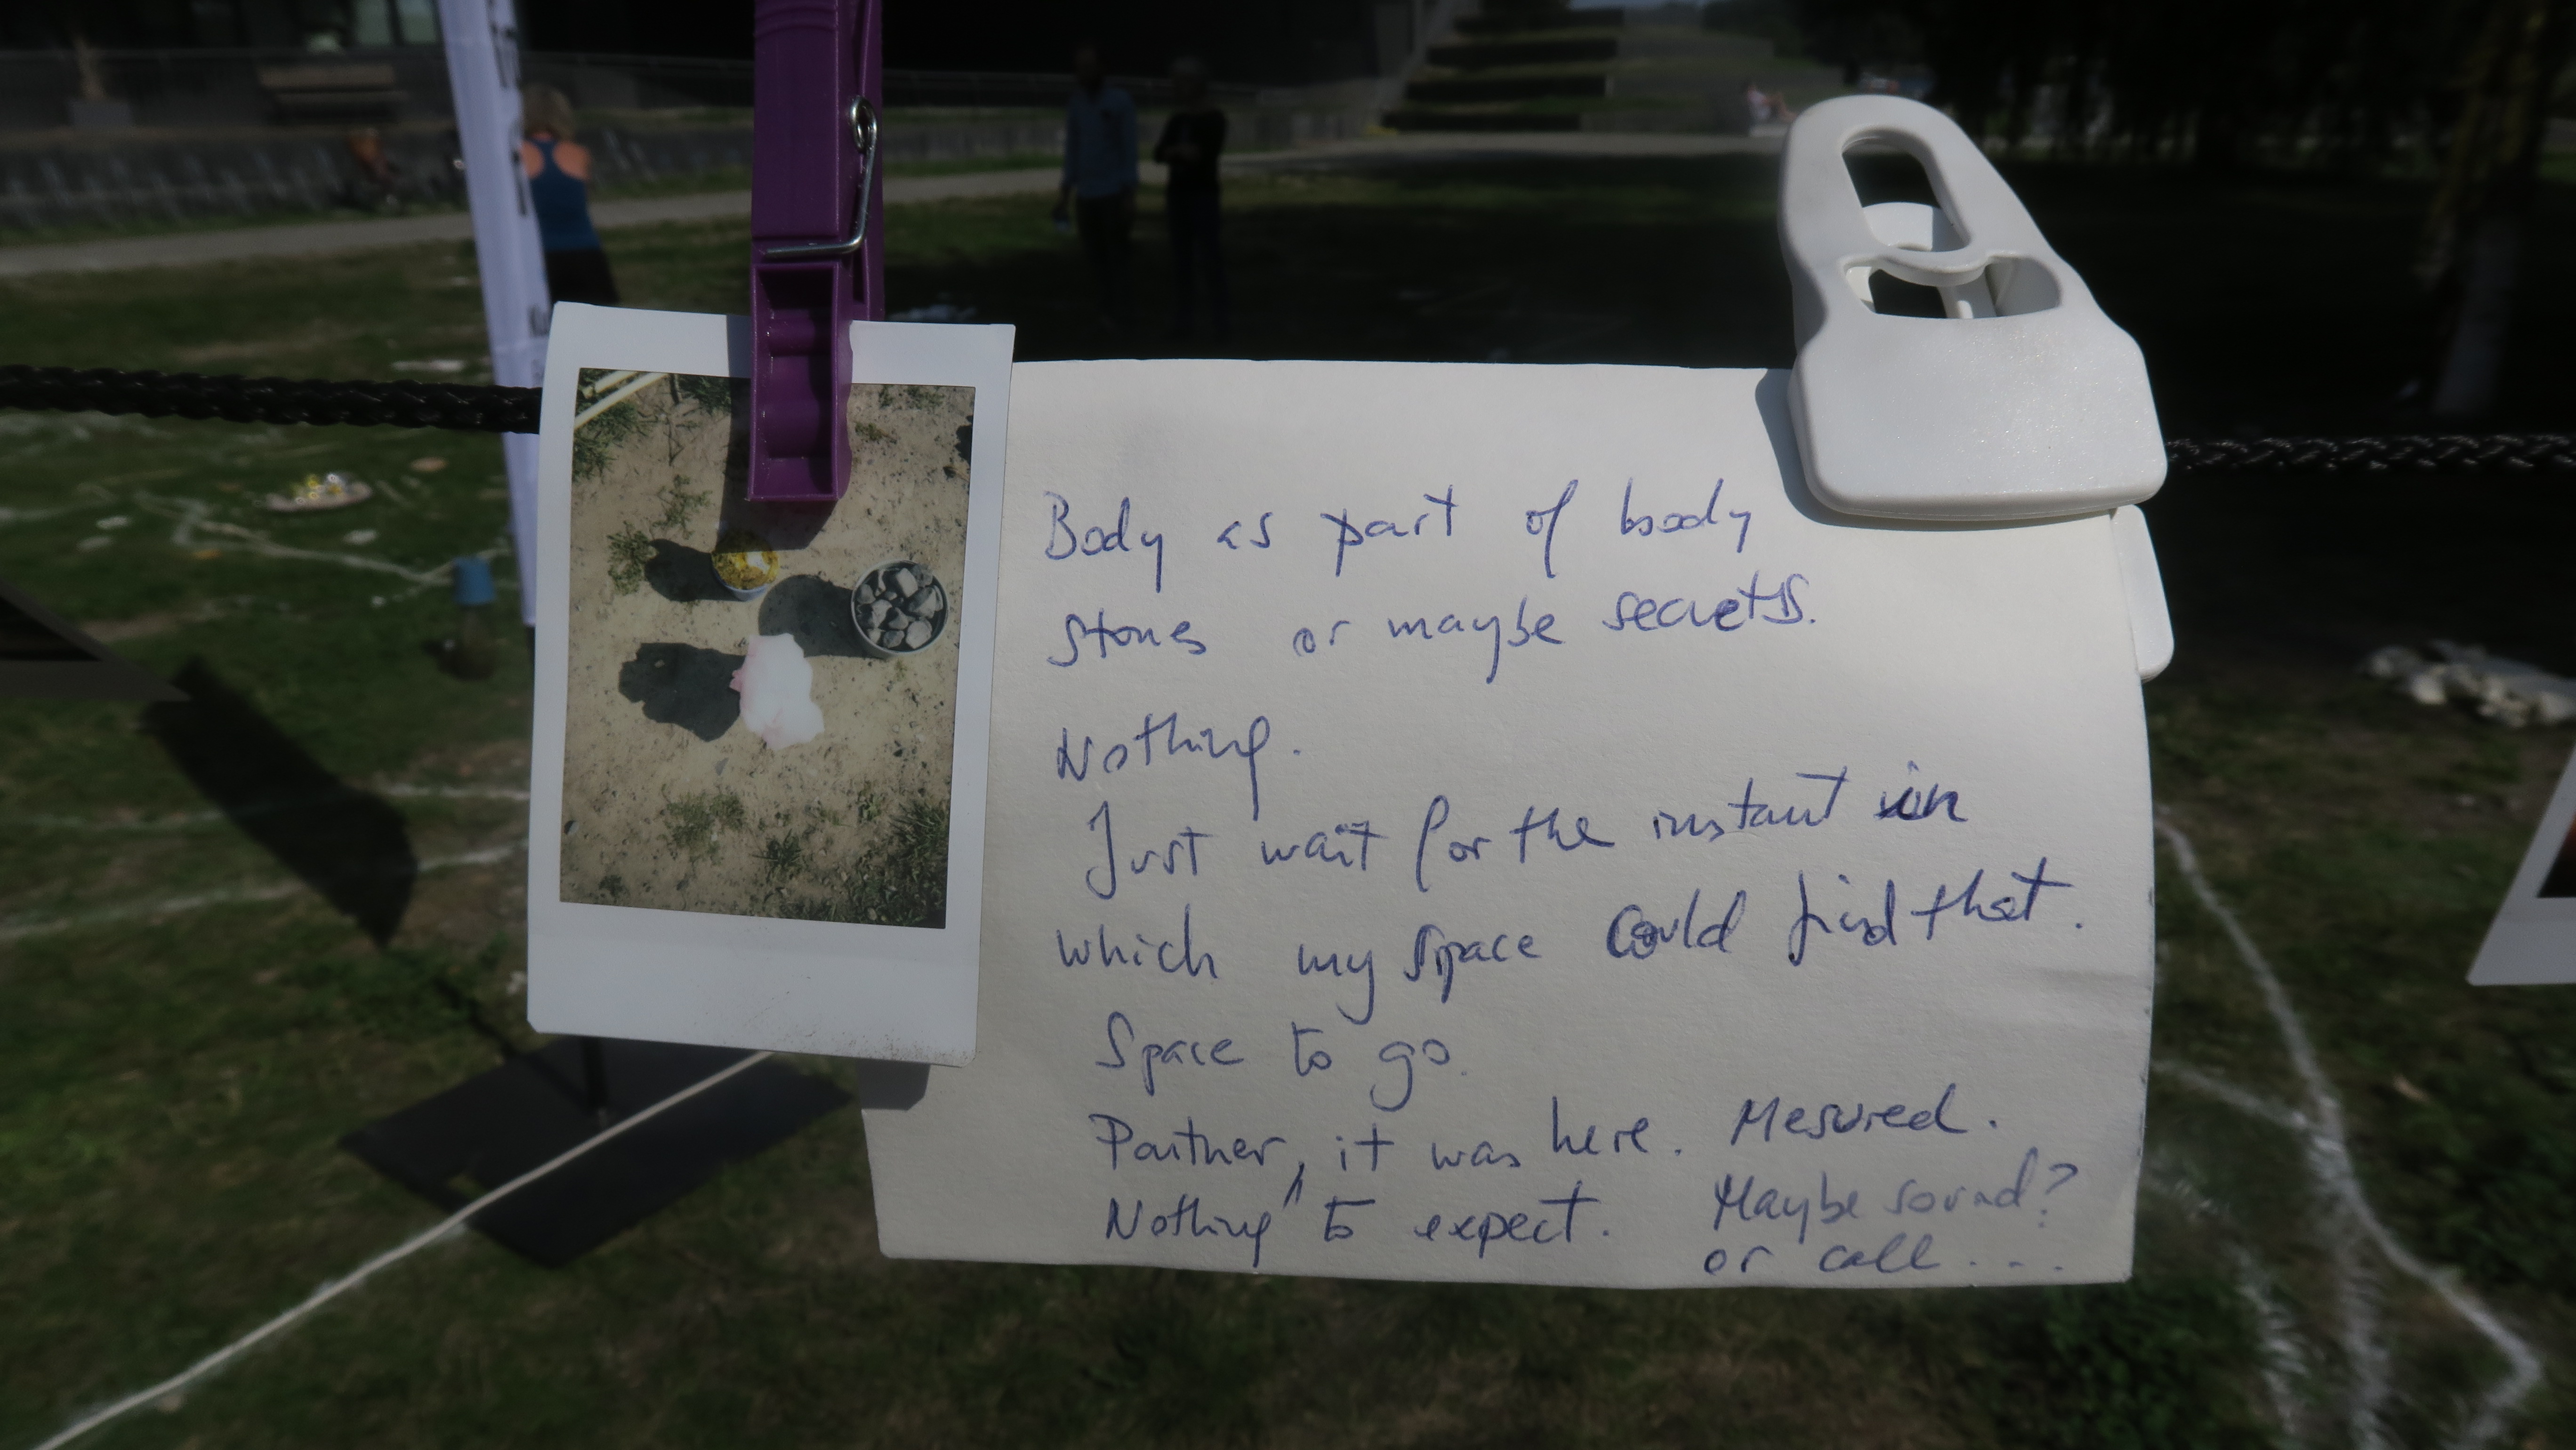 Body as part of body
stones or maybe secrets.
Nothing.
Just wait for the instant in
which my space could find that.
Space to go.
Partner, it was here. Mesured.
Nothing to expect. Maybe sound?
or call....